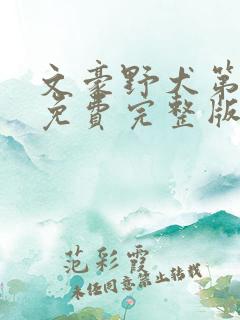 文豪野犬第
免费完整版
范彩霞
未经同意禁止转载